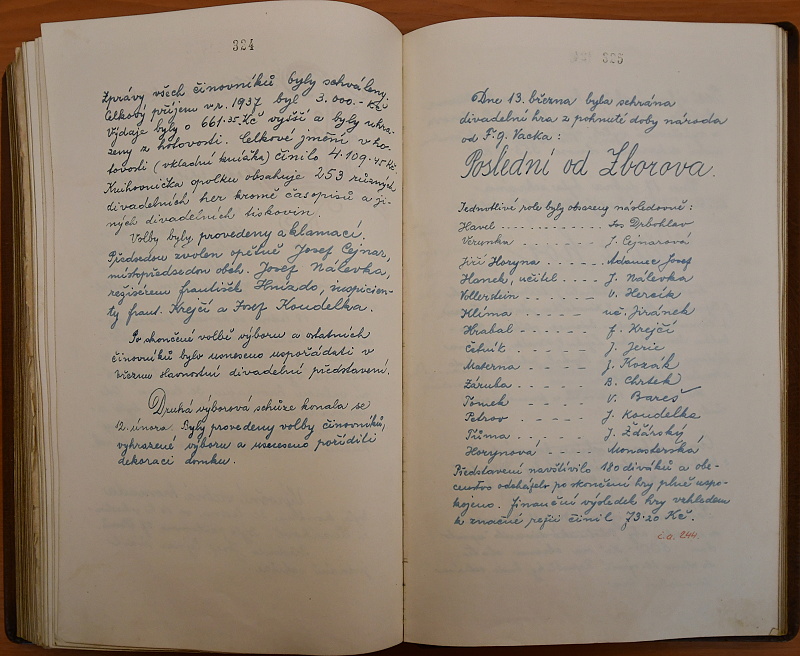 324
Zprávy všech činovníků byly schváleny.
Celkový příjem v r. 1937 byl 3.000.- Kč
Výdaje byly o 661.35 Kč vyšší a byly uhra-
zeny z hotovosti. Celkové jmění v ho-
tovosti (vkladní knížka) činilo 4.109.45 Kč.
Knihovnička spolku obsahuje 253 různých
divadelních her kromě časopisů a ji-
ných divadelních tiskovin.
Volby byly provedeny aklamací.
Předsedou zvolen opětně Josef Cejnar,
místopředsedou obch. Josef Nálevka,
režisérem František Hnízdo, inspicien-
ty frant. Krejčí a Josef Koudelka.
Po skončené volbě výboru a ostatních
činovníků bylo usneseno uspořádati v
březnu slavnostní divadelní představení.
Druhá výborová schůze konala se
12. února. Byly provedeny volby činovníků,
vyhrazené výboru a usneseno poříditi
dekoraci domku.
325
Dne 13. března byla sehrána
divadelní hra z pohnuté doby národa
od F. g. Vacka:
Poslední od Zborova.
Jednotlivé role byly obsazeny následovně:
Havel ........... Jos Drbohlav
Verunka - - - - - - J. Cejnarová
Jiří Horyna - - - - - Adamec Josef
Hanek, učitel - - - - J. Nálevka
Vollerstein - - - - - V. Hercík
Klíma - - - - - uč. Jiránek
Hrabal - - - - - f. Krejčí
Četník - - - - - J. Jeric
Materna - - - - J. Kozák
Záruba - - - - B. Chrtek
Tomek - - - - V. Bareš
Petrov - - - - J. Koudelka
Tůma - - - - J. Žďárský
Horynová - - - - Monasterská
Představení navštívilo 180 diváků a obe-
censtvo odcházelo po skončení hry plně uspo-
kojeno. finanční výsledek hry vzhledem
k značné režii činil 73.20 Kč.
č.a. 244.